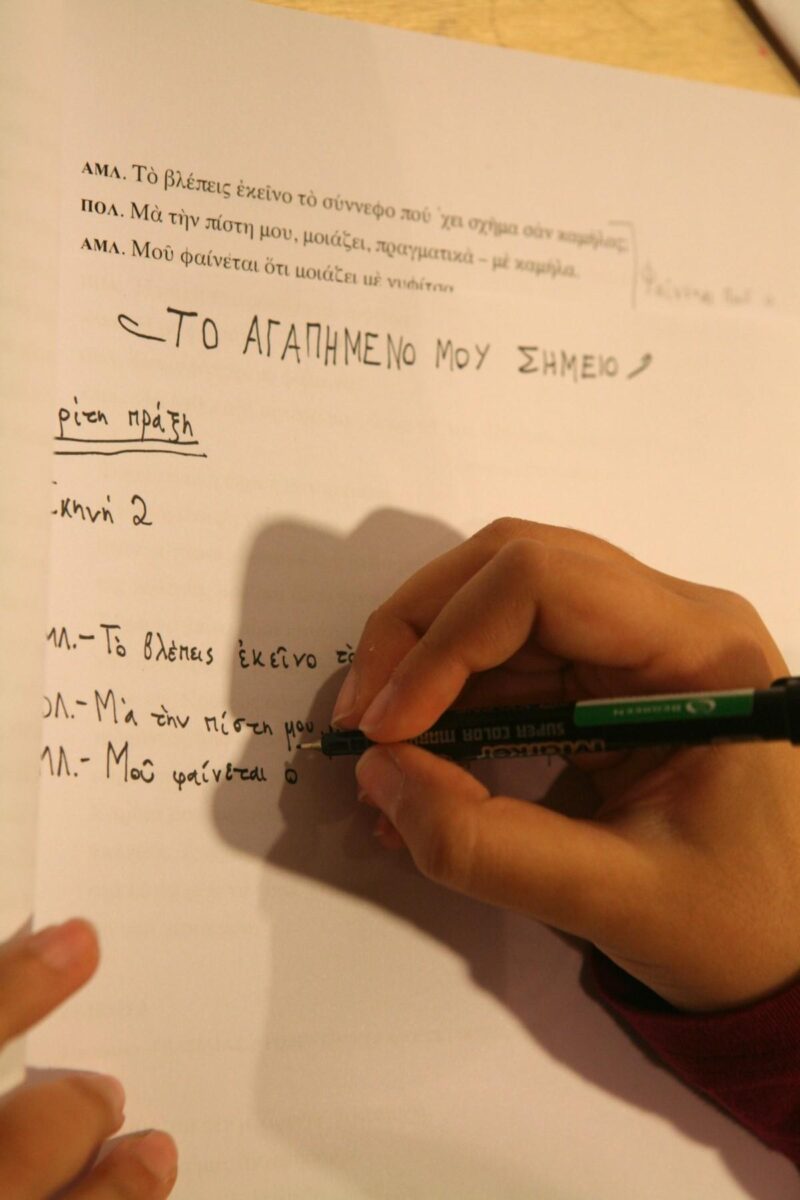 ΑΜΛ. Τὸ βλέπεις ἐκεῖνο τὸ σύννεφο πού 'χει σχῆμα σὰν καμήλας;
ΠΟΛ. Μὰ τὴν πίστη μου, μοιάζει, πραγματικὰ – μὲ καμήλα.
ΑΜΛ. Μοῦ φαίνεται ὅτι μοιάζει μὲ
ΤΟ ΑΓΑΠΗΜΕΝΟ ΜΟΥ ΣΗΜΕΙΟ
ρίτη πράξη
κηνή 2
ΜΛ.- Τὸ βλέπεις ἐκεῖνο τὸ
ΟΛ.- Μὰ τὴν πίστη μου
ΜΛ.- Μοῦ φαίνεται ὅ
SUPER COLOR
Marker